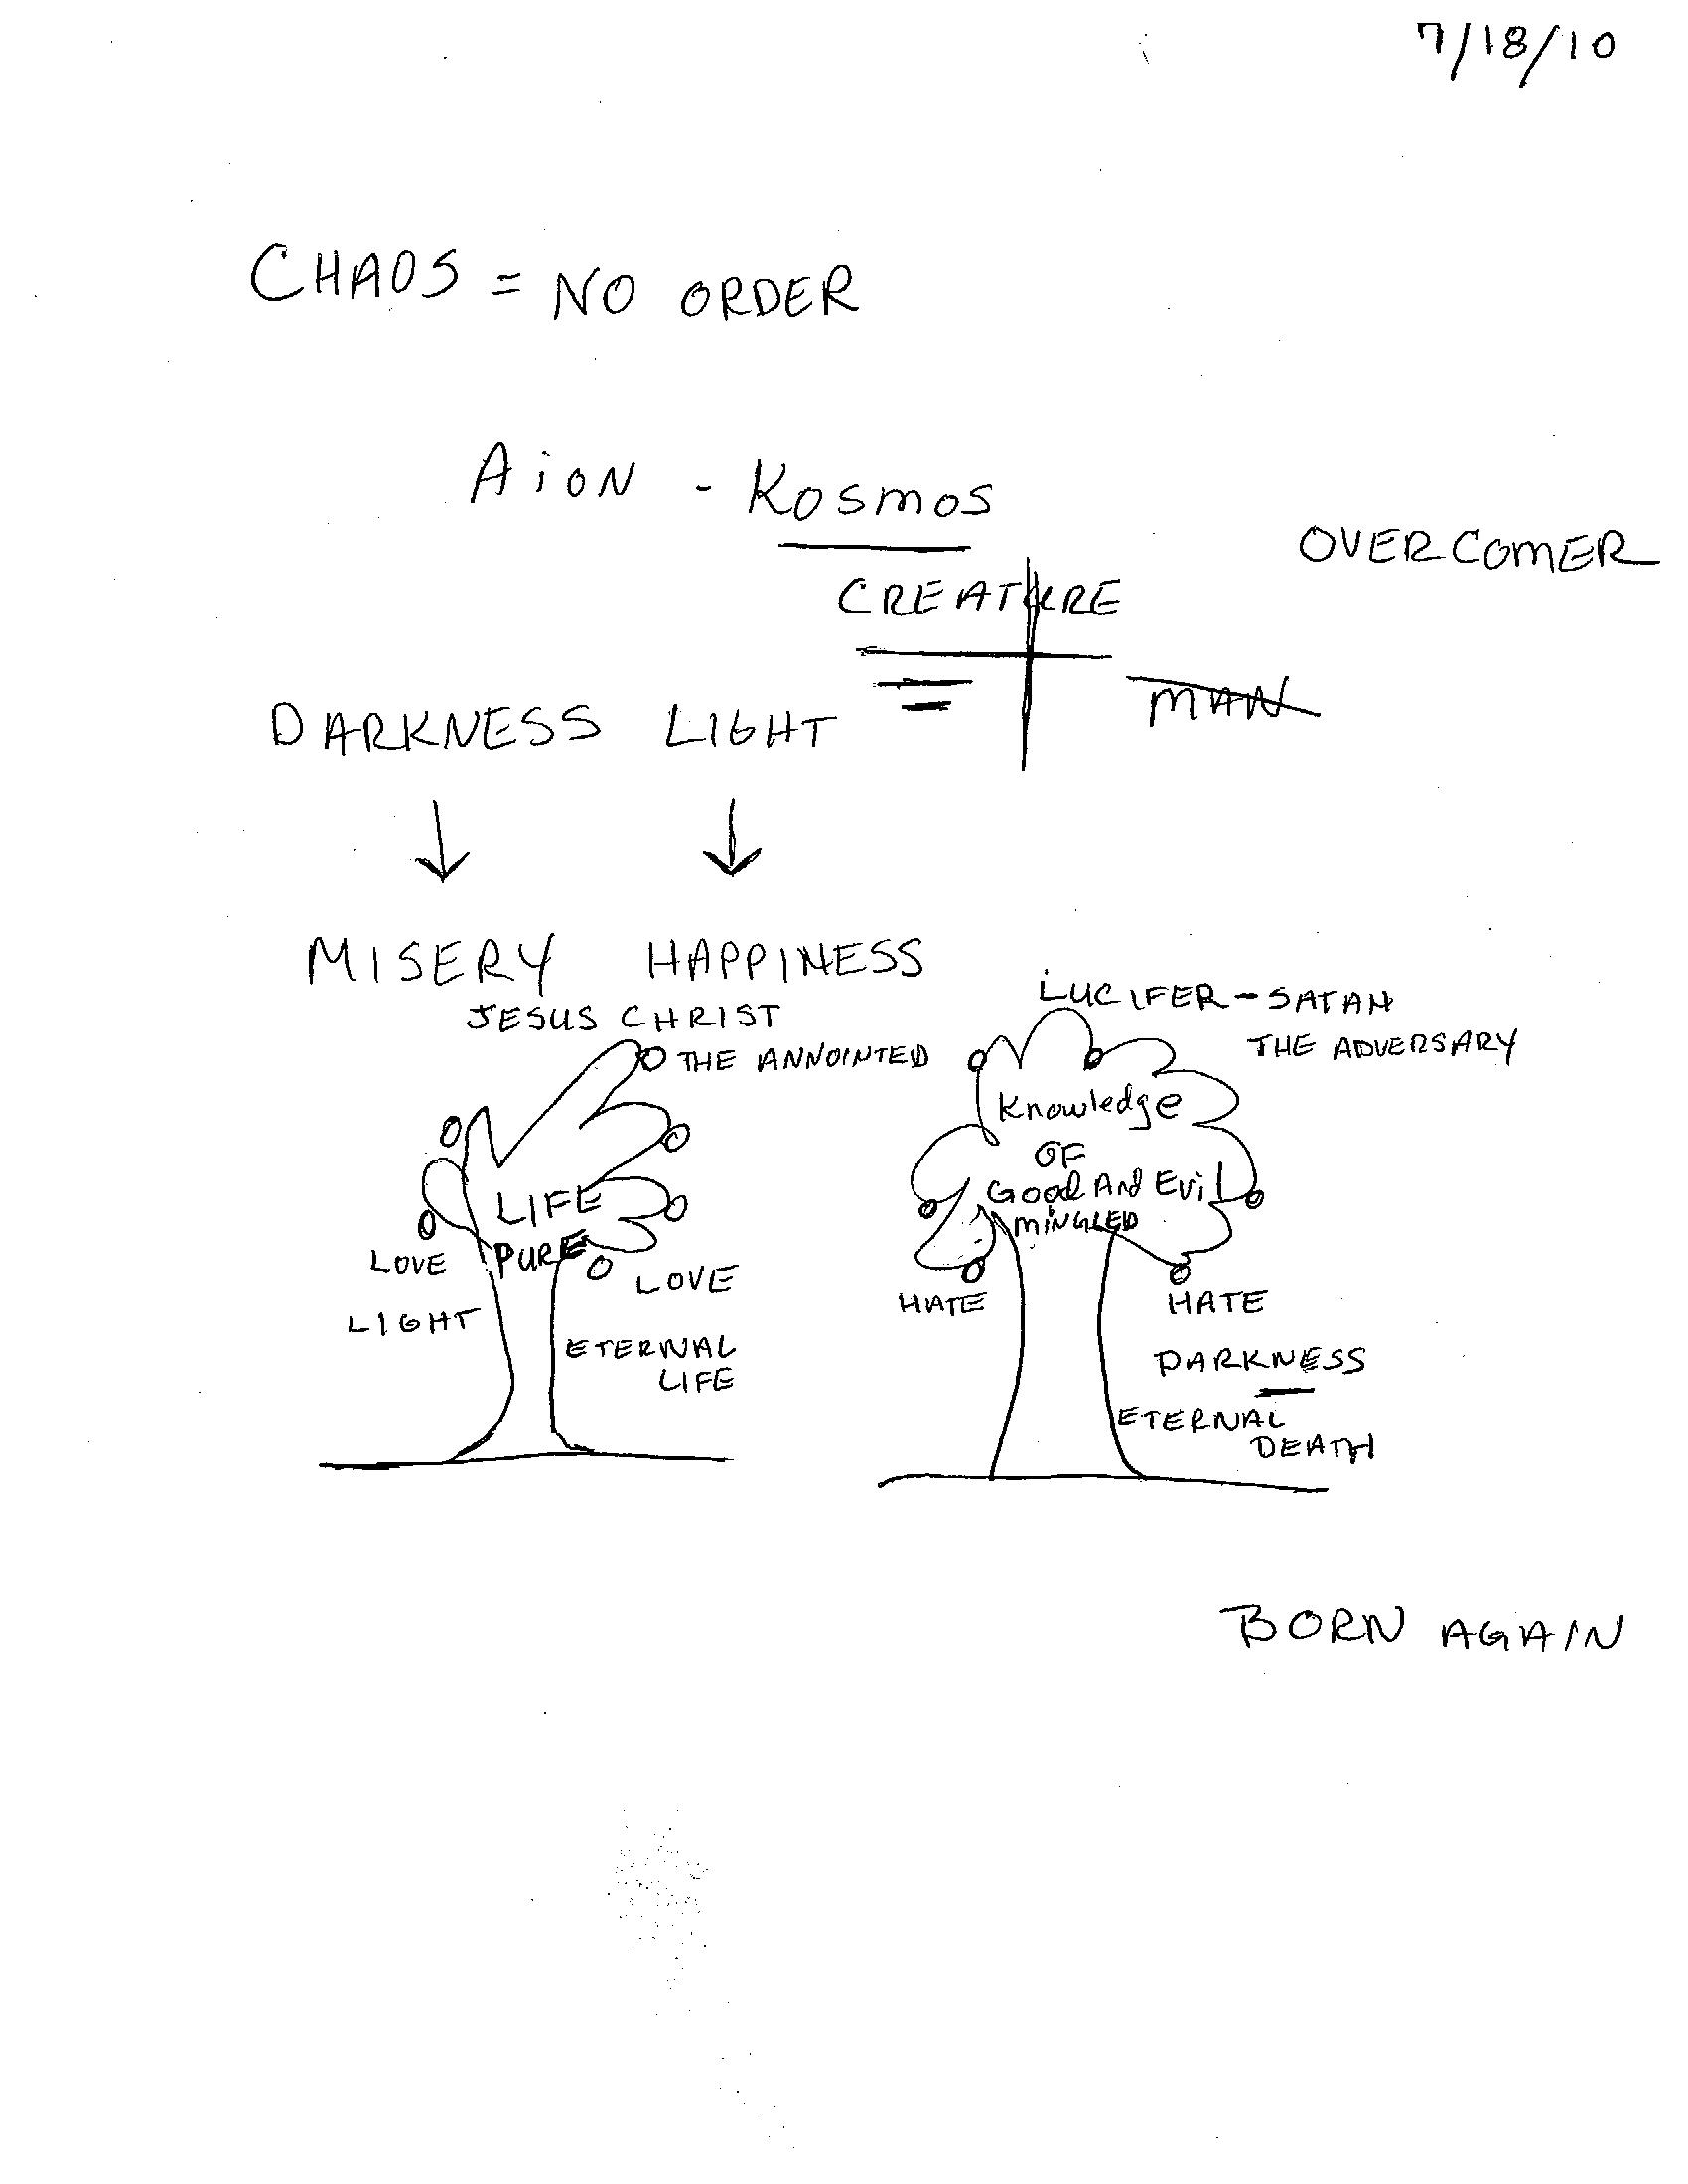 7/18/10
CHAOS = NO ORDER
AiON - KOSMOS
OVERCOMER
CREATURE
MAN
DARKNESS LIGHT
MISERY HAPPINESS
JESUS CHRIST
THE ANNOINTED
LIFE
PURE
LOVE
LOVE
LIGHT
ETERNAL
LIFE
LUCIFER - SATAN
THE ADVERSARY
Knowledge
OF
Good And Evil
MiNGLED
HATE
HATE
DARKNESS
ETERNAL
DEATH
BORN AGAIN